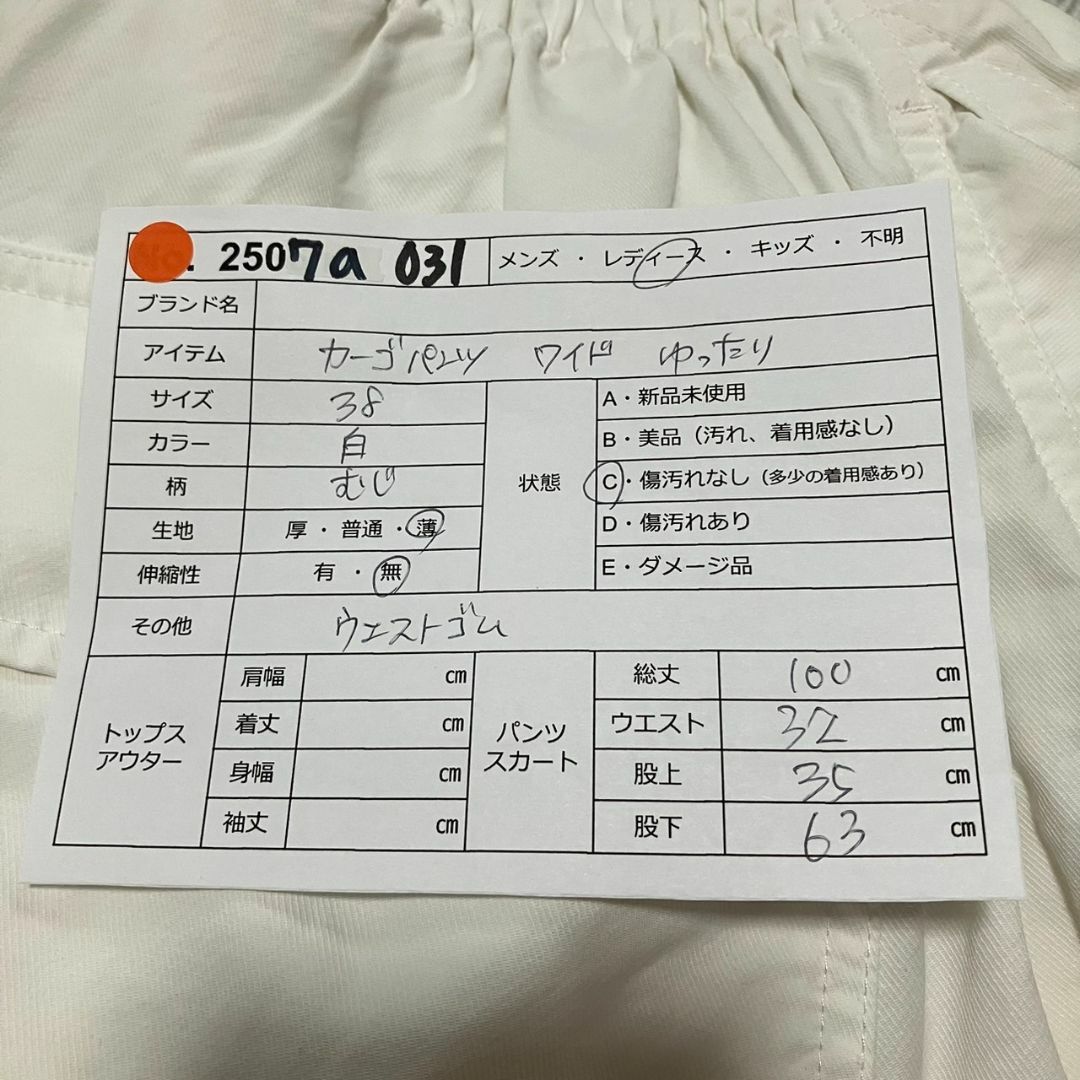 No. 2507a 031 メンズ ・ レディース ・ キッズ ・ 不明
ブランド名
アイテム カーゴパンツ ワイド ゆったり
サイズ 38
カラー 白
柄 むじ
生地 厚 ・ 普通 ・ 薄
伸縮性 有 ・ 無
状態
A・新品未使用
B・美品（汚れ、着用感なし）
C・傷汚れなし（多少の着用感あり）
D・傷汚れあり
E・ダメージ品
その他 ウエストゴム
トップス
アウター
肩幅 cm
着丈 cm
身幅 cm
袖丈 cm
パンツ
スカート
総丈 100 cm
ウエスト 32 cm
股上 35 cm
股下 63 cm